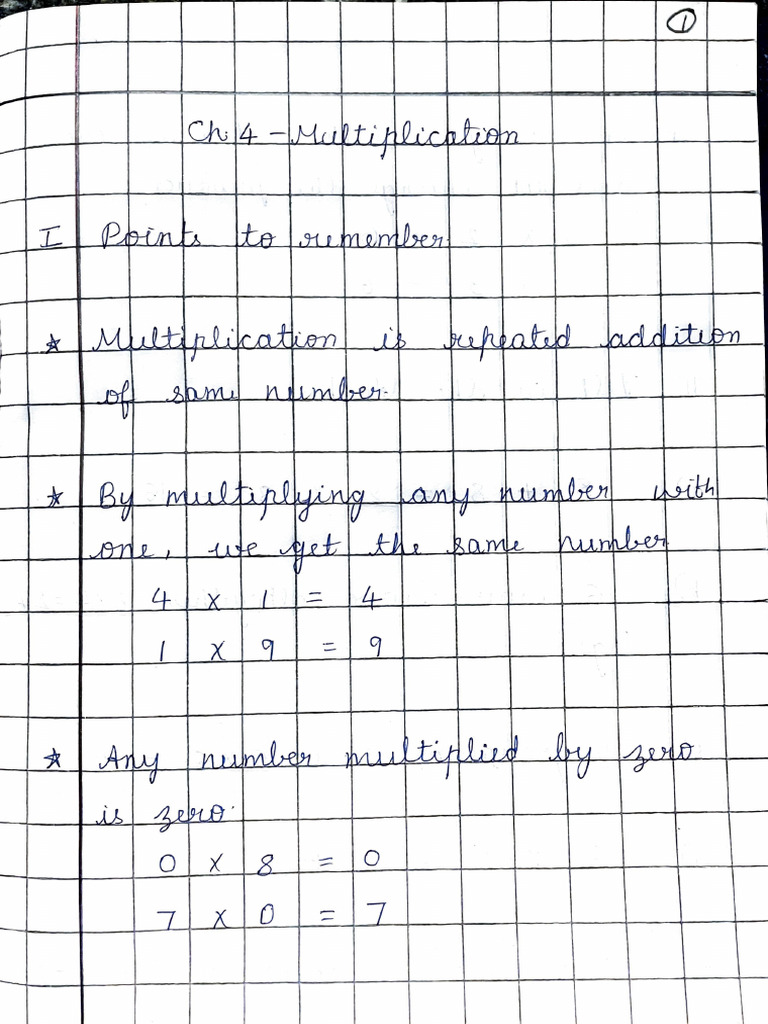 1
Ch 4 - Multiplication
I Points to remember
★ Multiplication is repeated addition
of same number.
★ By multiplying any number with
one, we get the same number
4 x 1 = 4
1 x 9 = 9
★ Any number multiplied by zero
is zero.
0 x 8 = 0
7 x 0 = 7